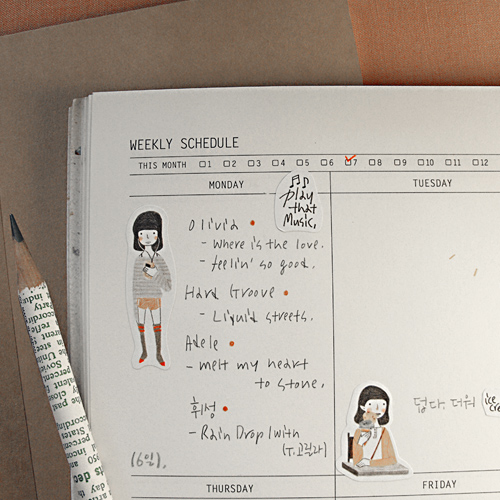 WEEKLY SCHEDULE
THIS MONTH 1 2 3 4 5 6 7 8 9 10 11 12
MONDAY
TUESDAY
play
that
Music,
Olivia
- Where is the love.
- feelin' so good.
Hard Groove
- Liquid streets.
Adele
- melt my heart
to stone.
휘성
- Rain Drop (with
(T.고릴라)
(6일).
덥다. 더워
ice
THURSDAY
FRIDAY